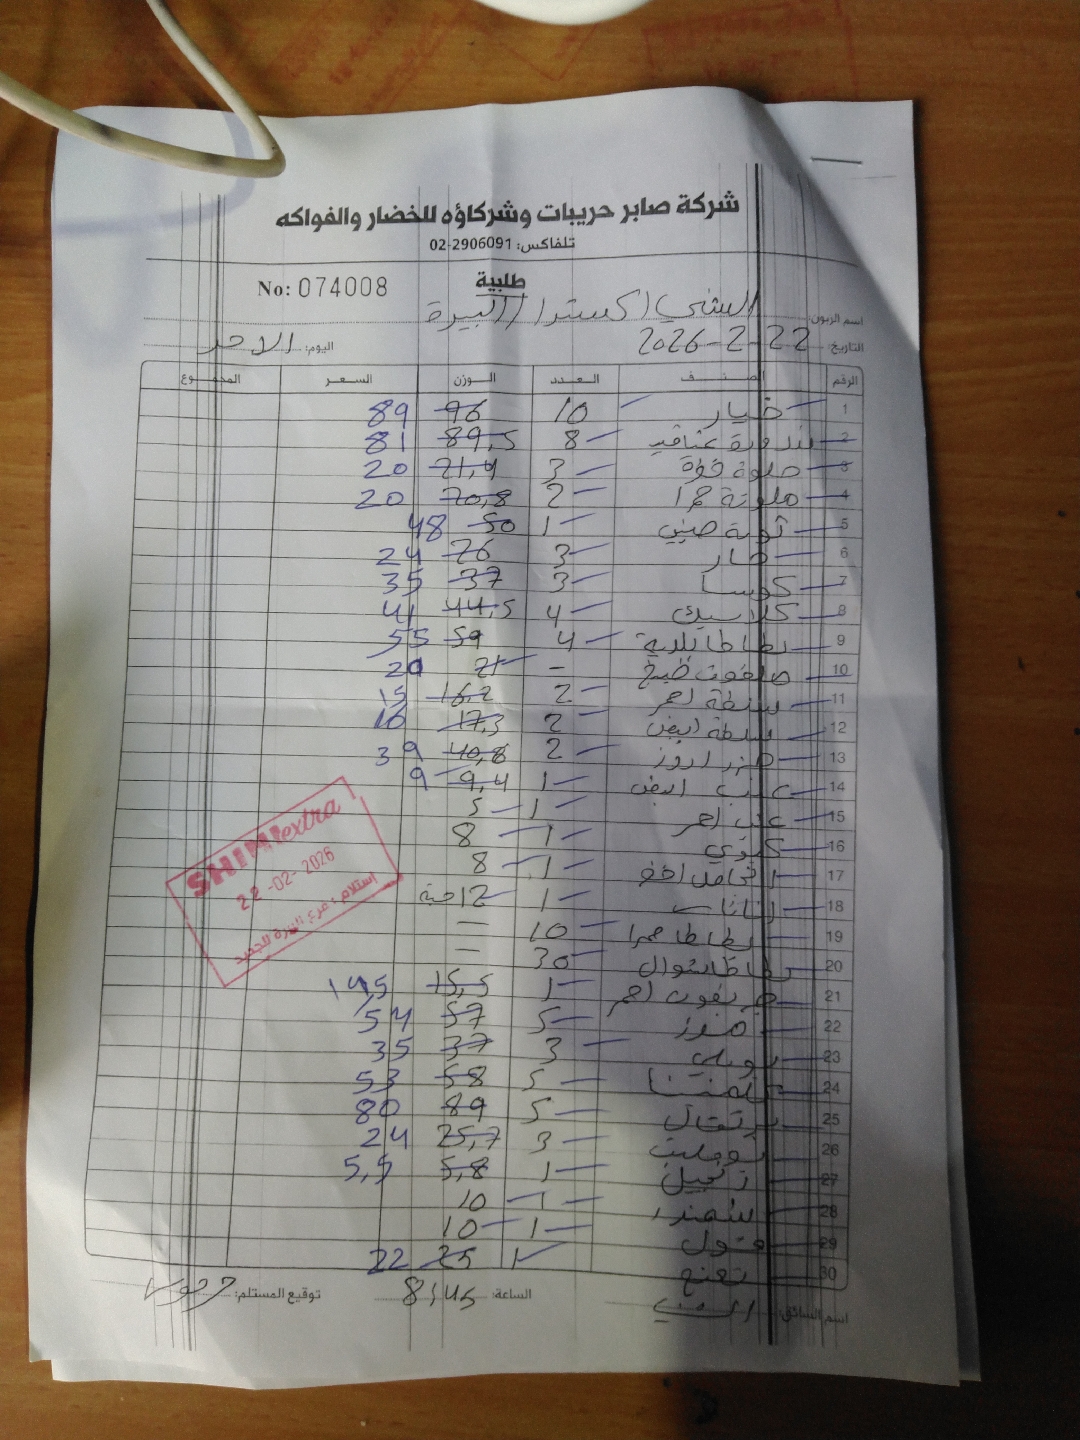 شركة صابر حريبات وشركاؤه للخضار والفواكه
تلفاكس: 02-2906091
طلبية
No: 074008
اسم الزبون: الشني اكسترا / البيرة
التاريخ: 22-2-2026 اليوم: الاحد
الرقم الصنف العدد الوزن السعر المجموع
1 خيار 10 96 89
2 بندورة عناقيد 8 89,5 81
3 3 21,4 20
4 حلوة حمرا 2 20,8 20
5 ثومة صيني 1 50 48
6 حار 3 26 24
7 كوسا 3 37 35
8 كلاسيك 4 44,5 41
9 بطاطا 4 59 55
10 ملفوف طبخ – 21 20
11 بسطة احمر 2 16,2 15
12 بسطة ابيض 2 17,3 16
13 جزر اروز 2 40,8 39
14 عنب ابيض 1 9,4 9
15 عنب احمر 1 5
16 كيوي 1 8
17 1 8
18 اناناس 1 2
19 بطاطا حمرا 10 –
20 بطاطا شوال 30 –
21 جريفوت احمر 1 15,5 14,5
22 موز 5 57 54
23 بوملي 3 37 35
24 كلمنتينا 5 58 53
25 برتقال 5 89 80
26 3 25,7 24
27 زنجبيل 1 5,8 5,5
28 شمندر 1 10
29 فول 1 10
30 نعنع 1 25 22
اسم السائق: الساعة: 8:45 توقيع المستلم:
SHINI extra
22-02-2026